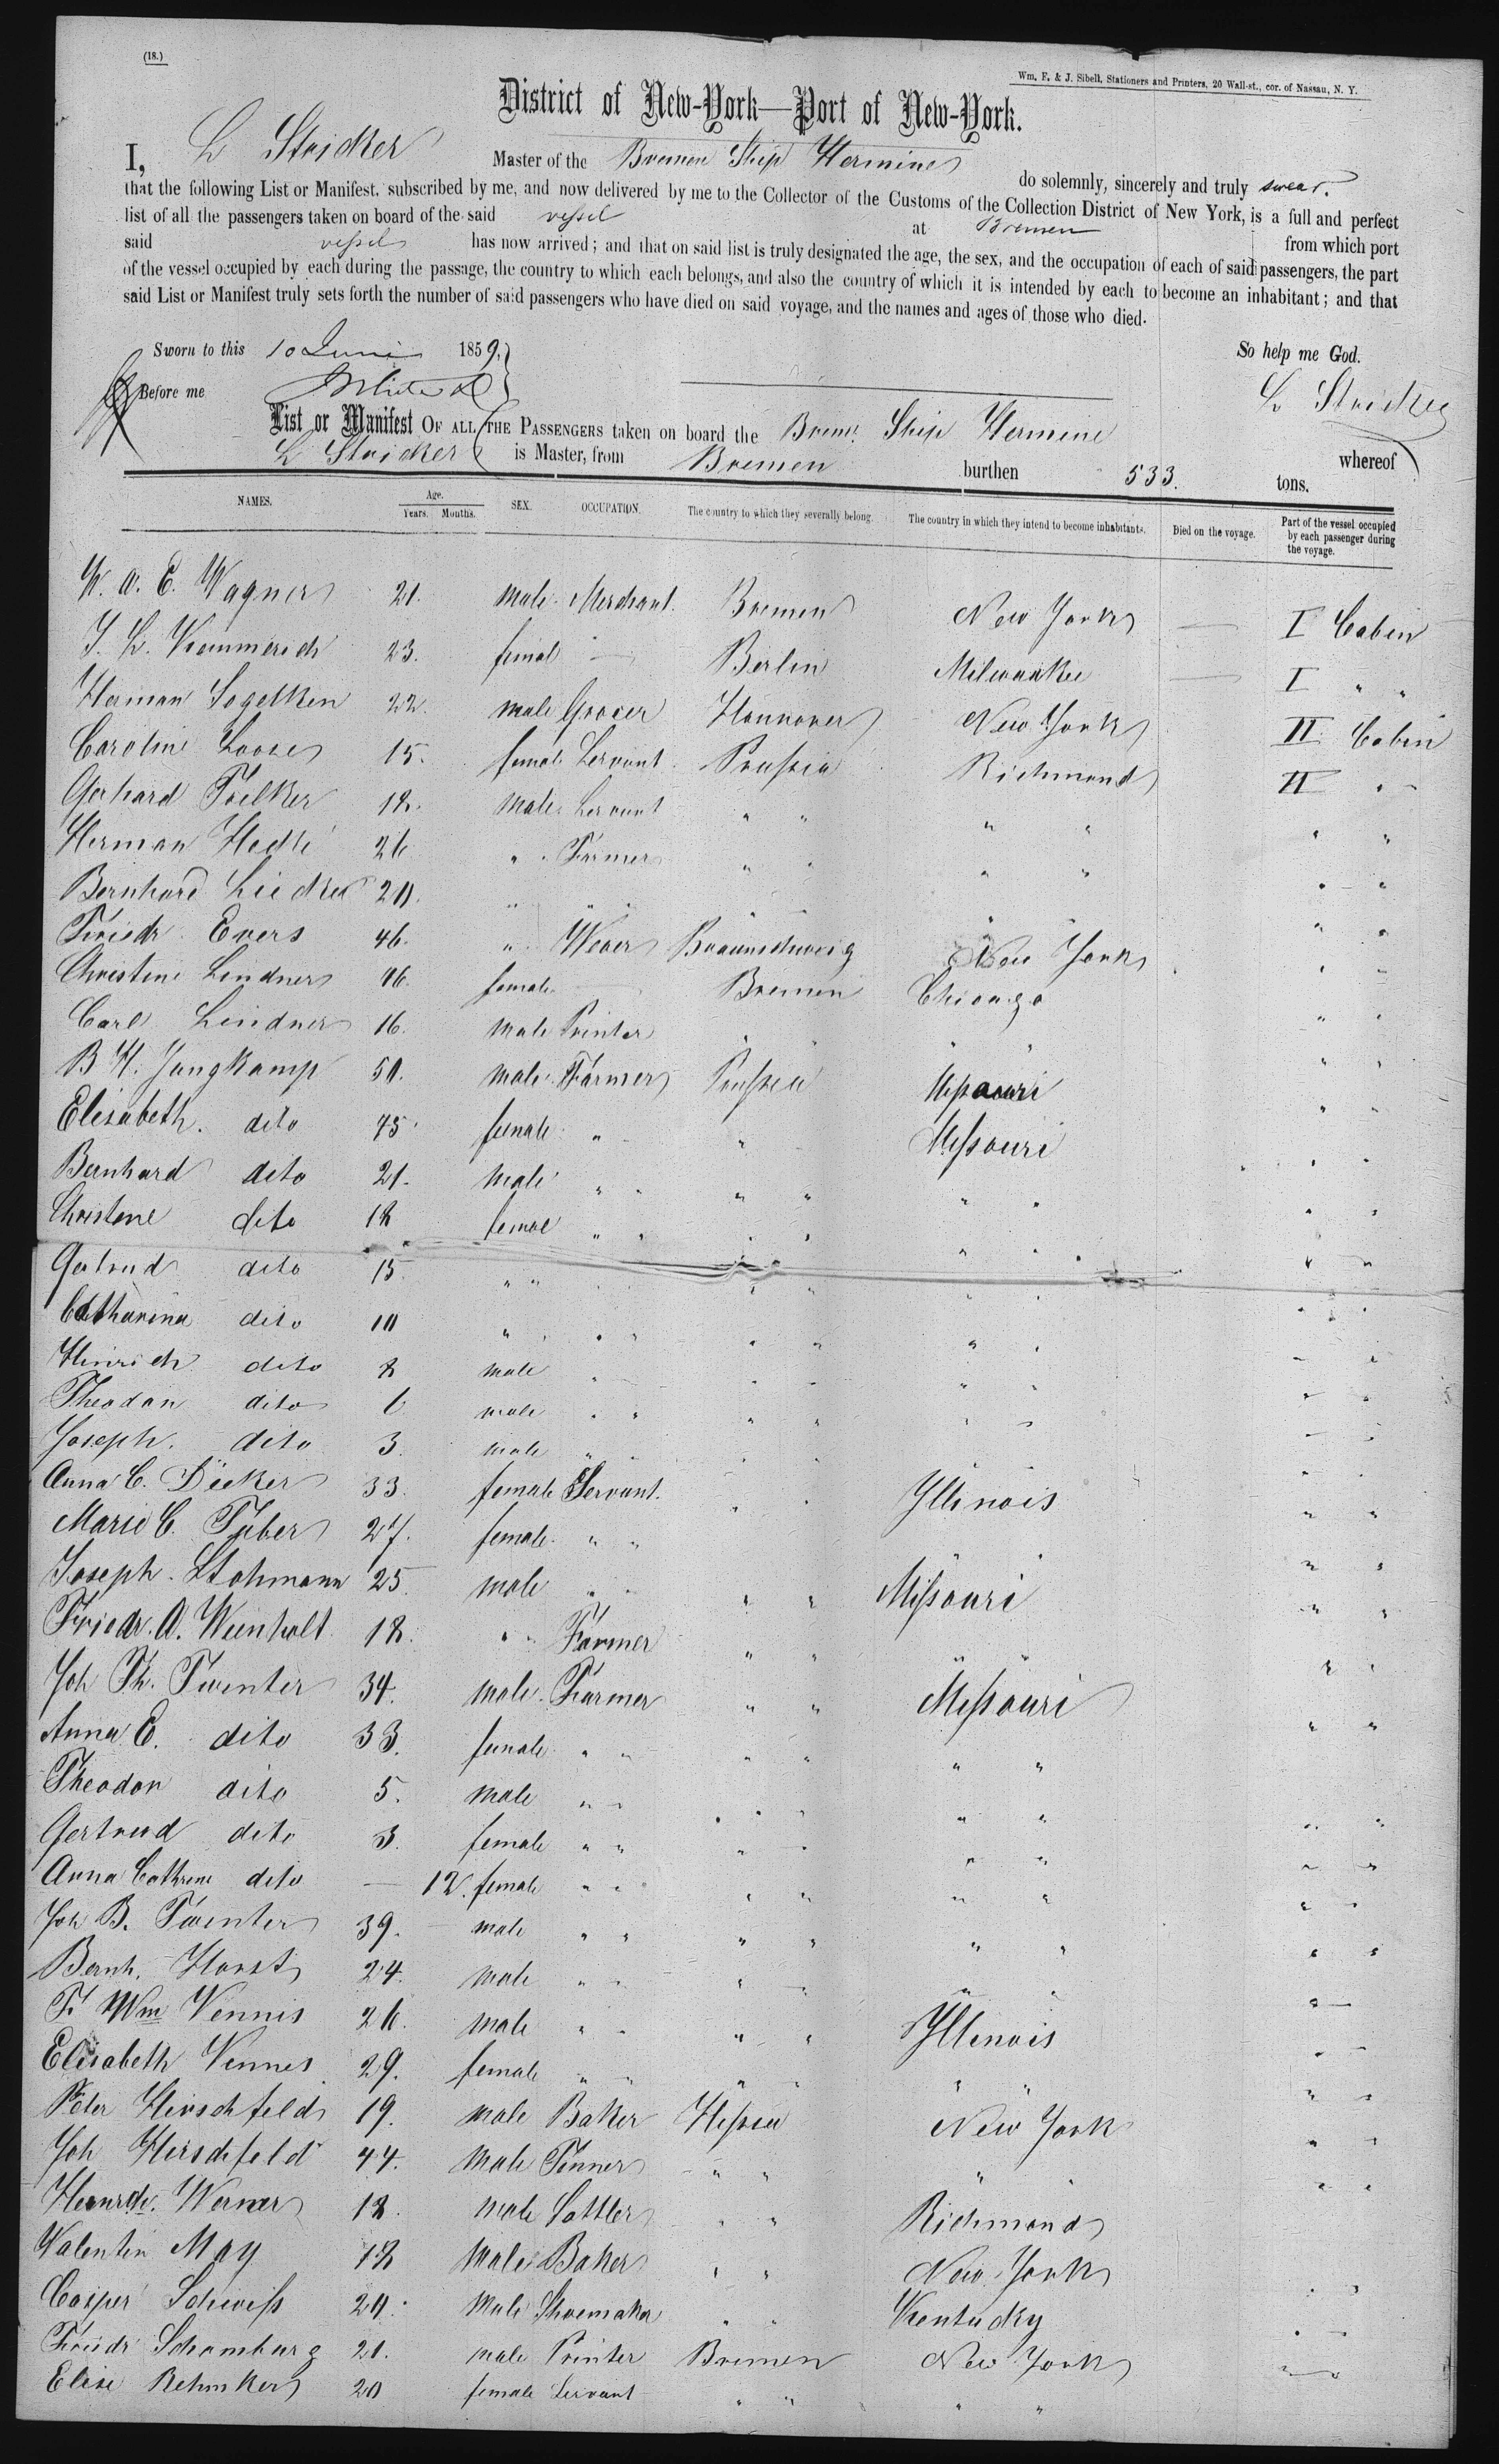 (18.)
Wm. F. & J. Sibell, Stationers and Printers, 20 Wall-st., cor. of Nassau, N. Y.
District of New-York—Port of New-York.
I, L Stricker Master of the Bremen Ship Hermine do solemnly, sincerely and truly swear.
that the following List or Manifest, subscribed by me, and now delivered by me to the Collector of the Customs of the Collection District of New York, is a full and perfect
list of all the passengers taken on board of the said vessel at Bremen from which port
said vessel has now arrived; and that on said list is truly designated the age, the sex, and the occupation of each of said passengers, the part
of the vessel occupied by each during the passage, the country to which each belongs, and also the country of which it is intended by each to become an inhabitant; and that
said List or Manifest truly sets forth the number of said passengers who have died on said voyage, and the names and ages of those who died.
Sworn to this 10 Juni 1859. So help me God.
Before me L Stricker
List or Manifest OF ALL THE PASSENGERS taken on board the Brem. Ship Hermine whereof
L Stricker is Master, from Bremen burthen 533. tons.
NAMES. Age. Years. Months. SEX. OCCUPATION. The country to which they severally belong. The country in which they intend to become inhabitants. Died on the voyage. Part of the vessel occupied by each passenger during the voyage.
W. A. E. Wagner 21. male Merchant. Bremen New York — I Cabin
J. L. Kemmerich 23. femal — Berlin Milwaukee — I " "
Herman Segelken 22. male Grocer Hannover New York II Cabin
Caroline Loose 15. female Servant Prussia Richmond II " "
Gerhard Foelker 18. male Servant " " " " " "
Herman Hedke 26 " Farmer " " " " " "
Bernhard Liecker 20. " " " " " " "
Friedr. Evers 46. " Wever Braunschweig New York " "
Christine Lindner 46. female — Bremen Chicago " "
Carl Lindner 16. male Printer " " " " " "
B H. Jungkamp 50. male Farmer Prussia Missouri " "
Elisabeth. dito 45 female " " Missouri " "
Bernhard dito 21. male " " " " " " " "
Christine dito 18 femal " " " " " " " "
Gertrud dito 15. " " " " " " " "
Catharina dito 10 " " " " " " " " "
Hinrich dito 8 male " " " " " " "
Theodor dito 6 male " " " " " " " "
Joseph. dito 3. male " " " " " "
Anna C. Decker 33. female Servant. " " Illinois " "
Marie C. Tuber 27. female " " " "
Joseph Stohmann 25. male " " " " Missouri " "
Friedr. A. Weinholt 18. " " Farmer " " " " " "
Joh Th. Twenter 34. male. Farmer " " Missouri " "
Anna E. dito 33. female " " " " " " " "
Theodor dito 5. male " " " " " " " "
Gertrud dito 3. female " " " " " " " "
Anna Cathrine dito — 12. female " " " " " " " "
Joh B. Twenter 39. male " " " " " " " "
Bernh. Horst 24. male " " " " " " " "
F. Wm Vennis 26. male " " " " Illinois " "
Elisabeth Vennes 29. female " " " " " " " "
Peter Hirschfeld 19. male Baker Hessen New York " "
Joh Hirschfeld 44. male Tanner " " " " " "
Heinrch. Werner 18. male Sattler " " Richmond
Valentin May 18 male Baker " " New York " "
Casper Schweiss 20. male Shoemaker " " Kentucky " "
Friedr Schomburg 21. male Printer Bremen New York " "
Elise Rehmker 20 female Servant " " " "